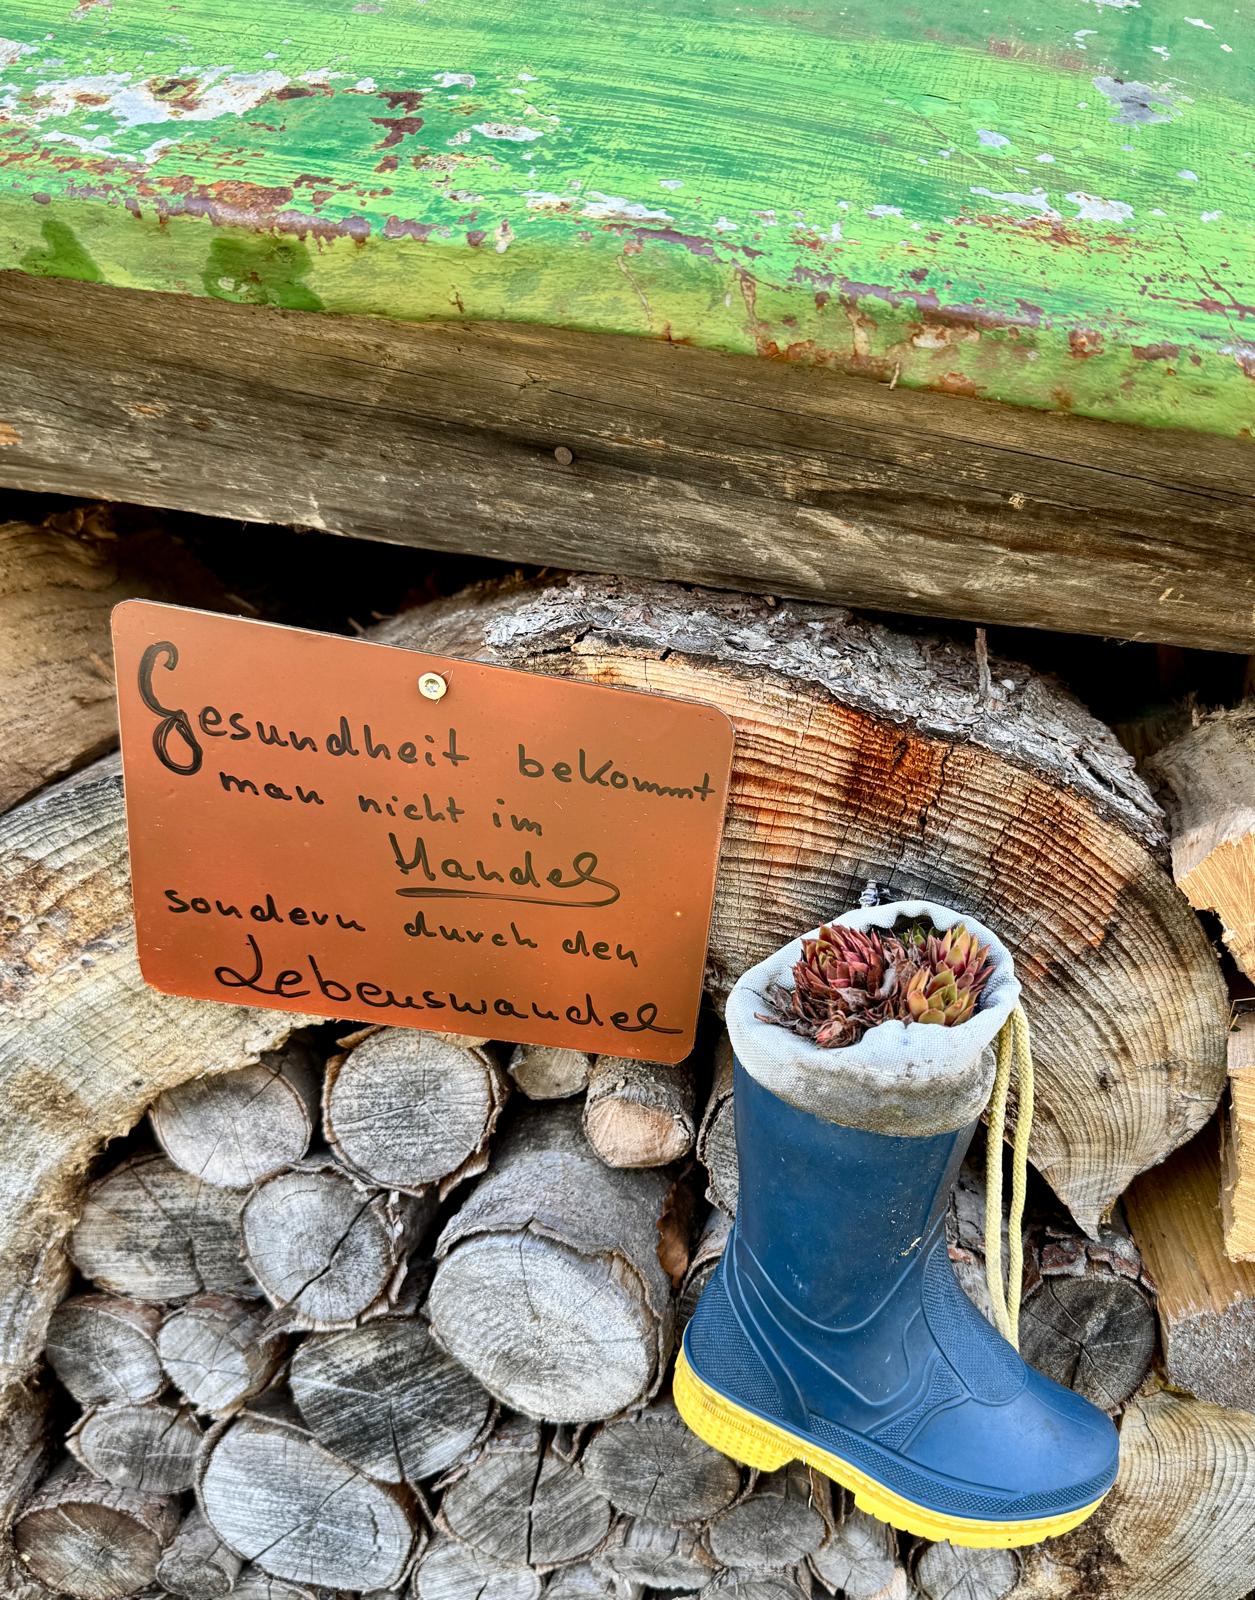 Gesundheit bekommt
man nicht im
Handel
sondern durch den
Lebenswandel